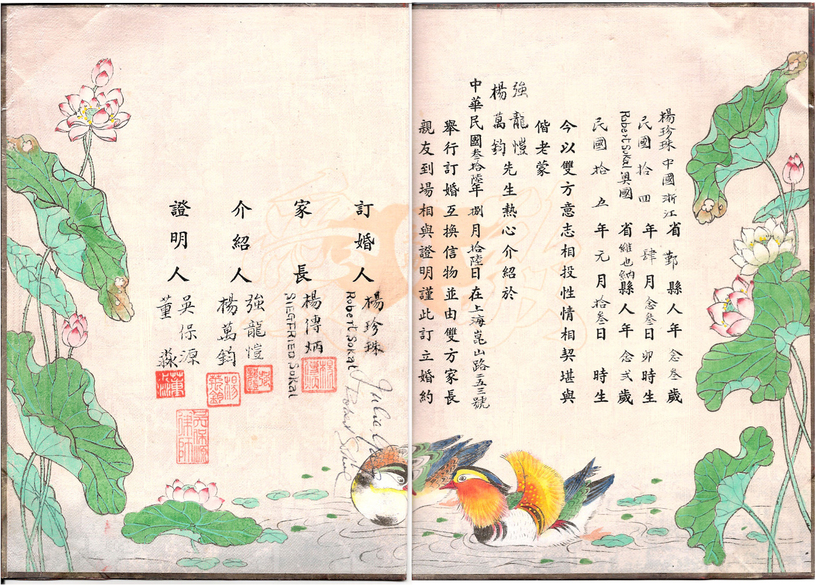 楊珍珠中國浙江省鄞縣人年念叁歲
民國拾四年肆月念叁日卯時生
Robert Sokal 奧國省維也納縣人年念弍歲
民國拾五年元月拾叁日時生
今以雙方意志相投性情相契堪與
偕老蒙
強龍愷
楊萬鈞先生熱心介紹於
中華民國叁拾陸年捌月拾陸日在上海崑山路二五三號
舉行訂婚互換信物並由雙方家長
親友到場相與證明謹此訂立婚約
訂婚人
楊珍珠
Robert Sokal
Robert Sokal
家長
楊傳炳
SIEGFRIED Sokal
介紹人
強龍愷
楊萬鈞
證明人
吳保源
董淼